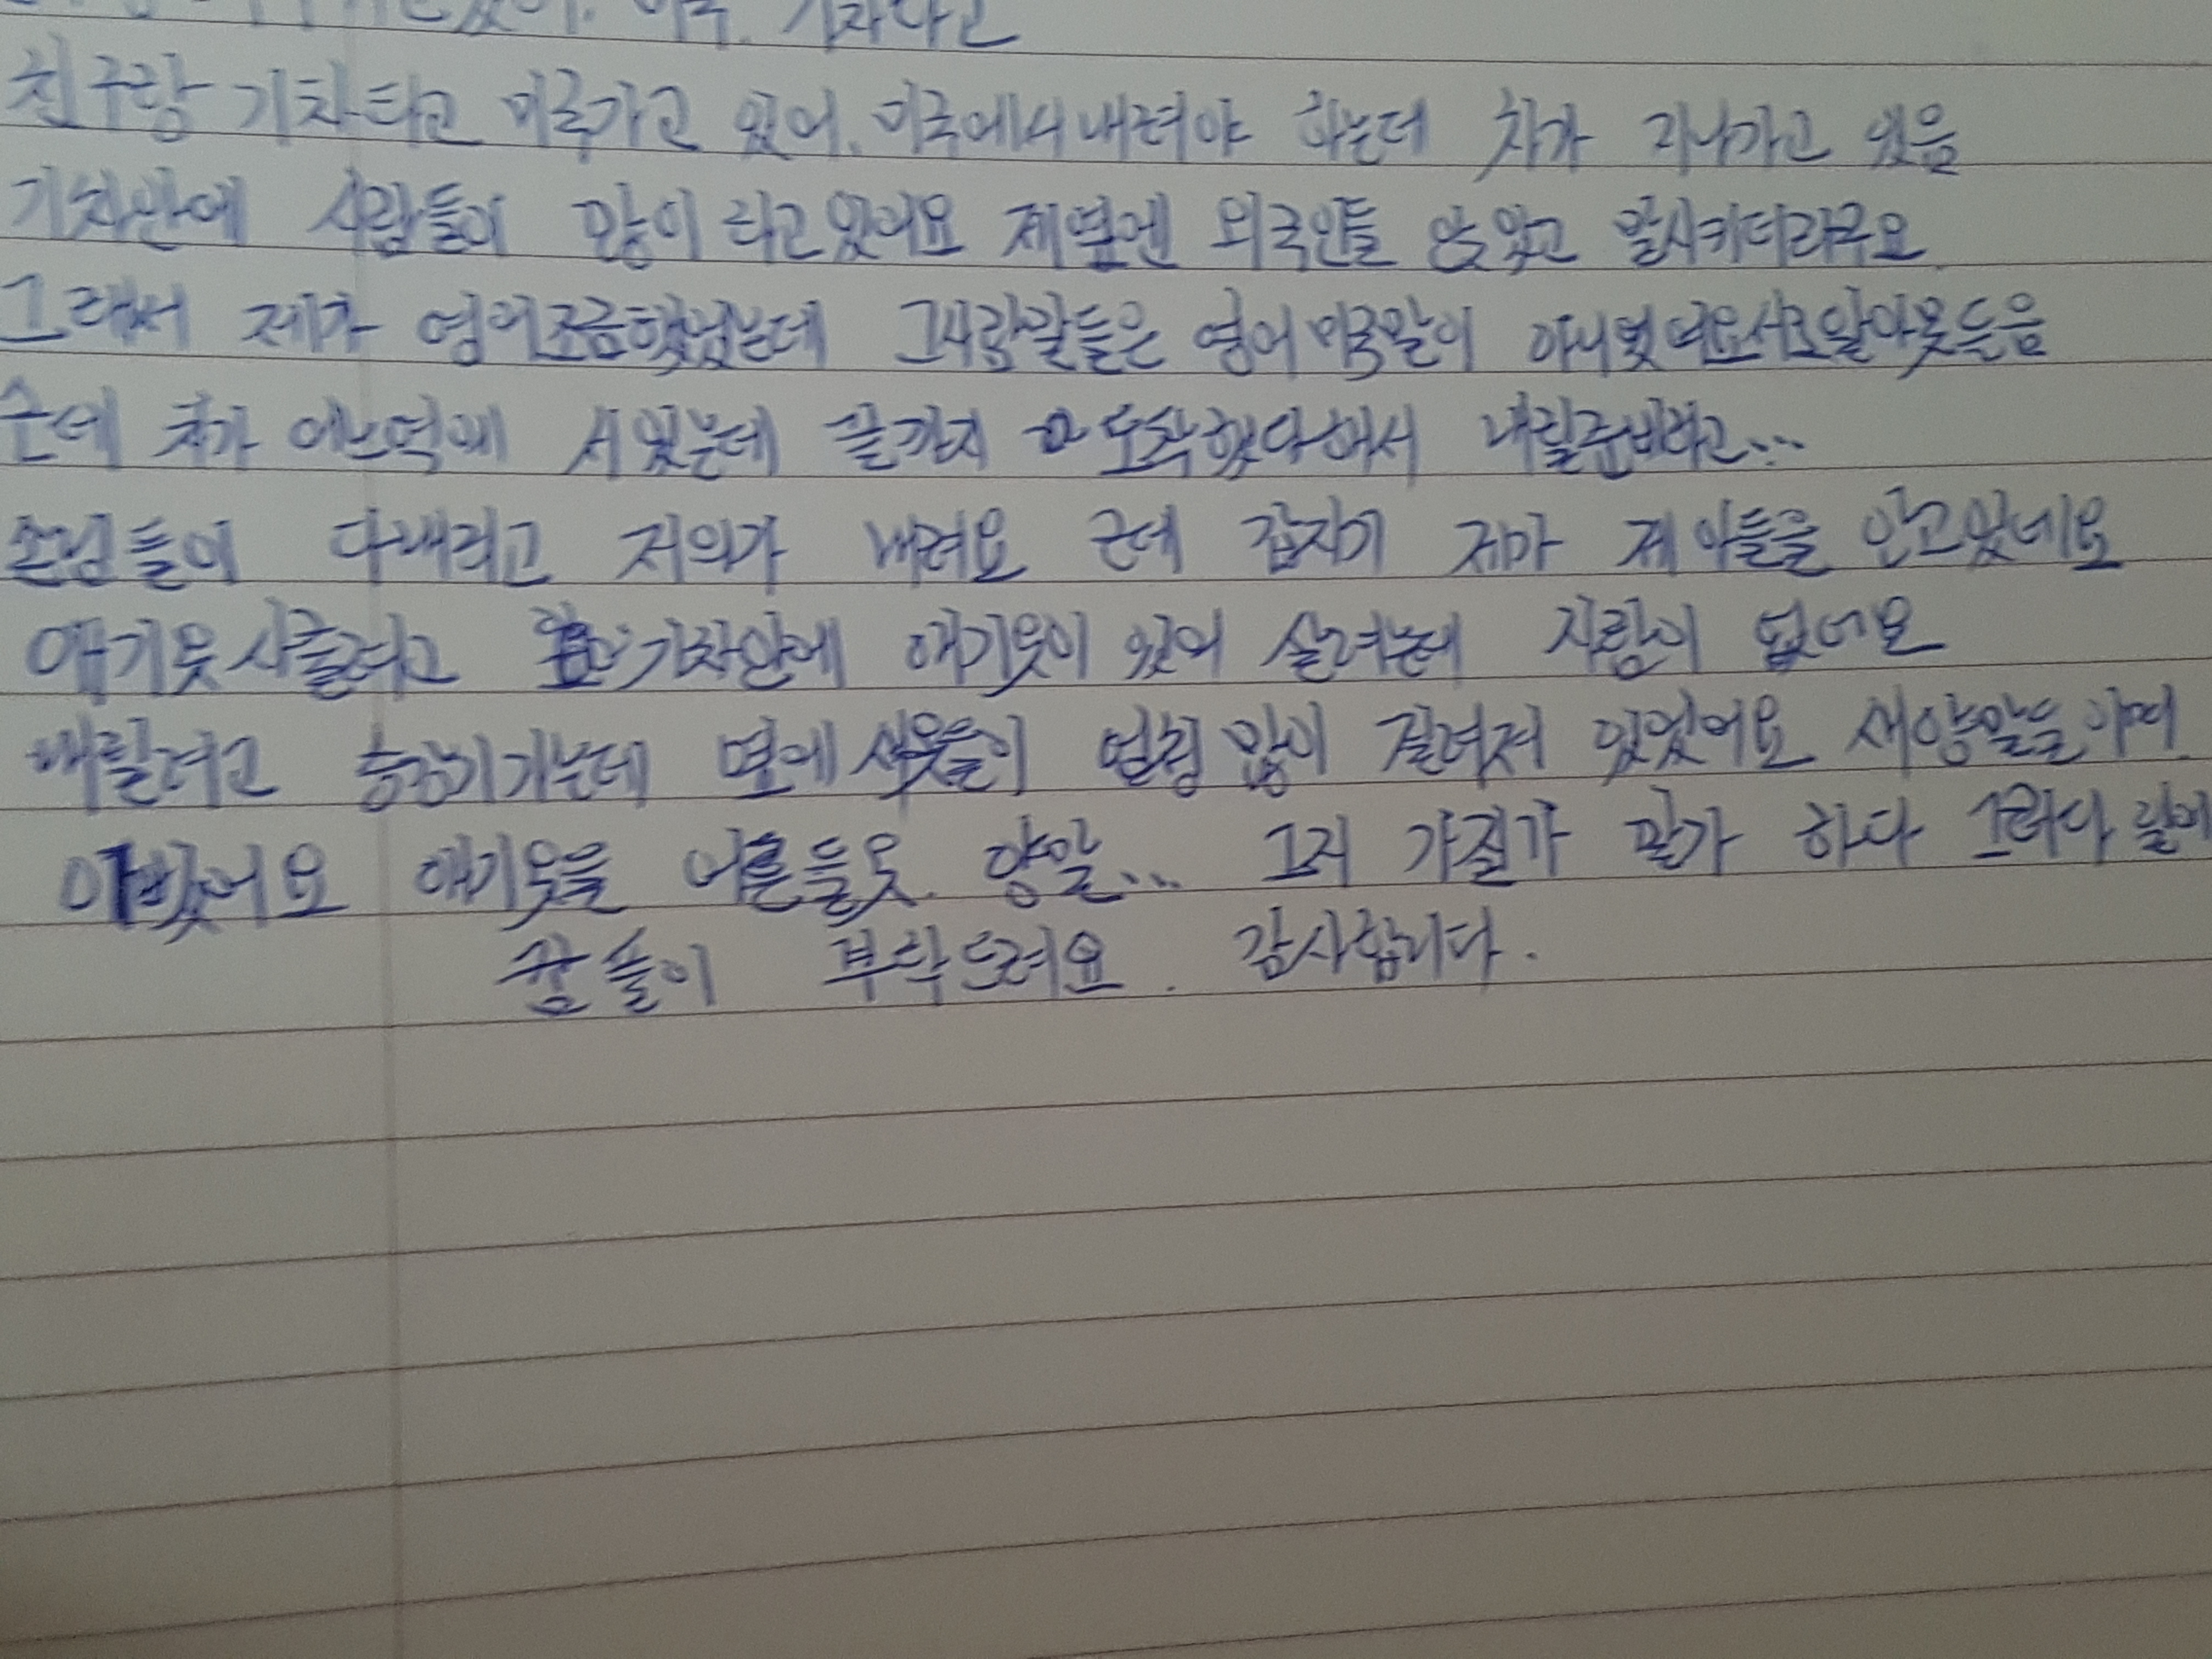 기차타고
친구랑 기차타고 미국가고 있어. 미국에서 내려야 하는데 차가 지나가고 있음
기차안에 사람들이 많이 타고있어요 제옆엔 외국인들 앉았고 말시키더라구요
그래서 제가 영어조금했었는데 그사람말들은 영어 미국말이 아니였어요서로알아못들음
근데 차가 언덕에 서있는데 끝까지 도착했다해서 내릴준비하고...
손님들이 다내리고 저의가 내려요 근데 갑자기 제가 제 아들을 안고있네요
애기옷사줄려고 기차안에 애기옷이 있어 살려는데 사람이 없네요
내릴려고 움직이는데 옆에 새옷들이 엄청 많이 걸려져 있었어요 새양말들이며
이뻤어요 애기옷들 어른들옷. 양말... 그거 가질가 말가 하다 그러다
꿈풀이 부탁드려요. 감사합니다.